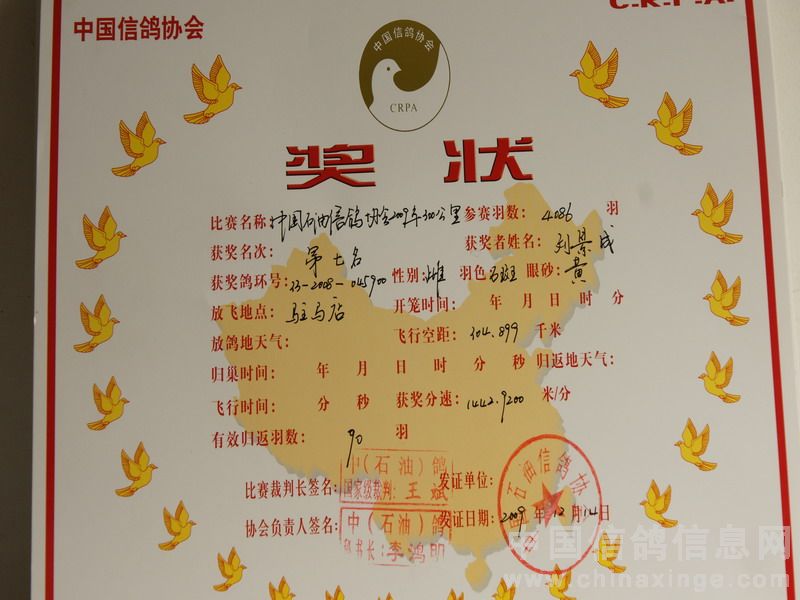 中国信鸽协会
C.R.P.A.
中国信鸽协会
CRPA
奖状
比赛名称:中国石油信鸽协会2009年300公里 参赛羽数: 4086 羽
获奖名次: 第七名 获奖者姓名: 刘景成
获奖鸽环号: 13-2008-045900 性别: 雌 羽色 石斑 眼砂: 黄
放飞地点: 驻马店 开笼时间: 年 月 日 时 分
放鸽地天气: 飞行空距: 304.899 千米
归巢时间: 年 月 日 时 分 秒 归返地天气:
飞行时间: 分 秒 获奖分速: 1442.9200 米/分
有效归返羽数: 90 羽
中(石油)鸽
比赛裁判长签名: 国家级裁判: 王斌 发证单位: 中国石油信鸽协会
中(石油)鸽
协会负责人签名: 秘书长: 李鸿明 发证日期: 2009年12月14日
中国信鸽信息网
www.chinaxinge.com